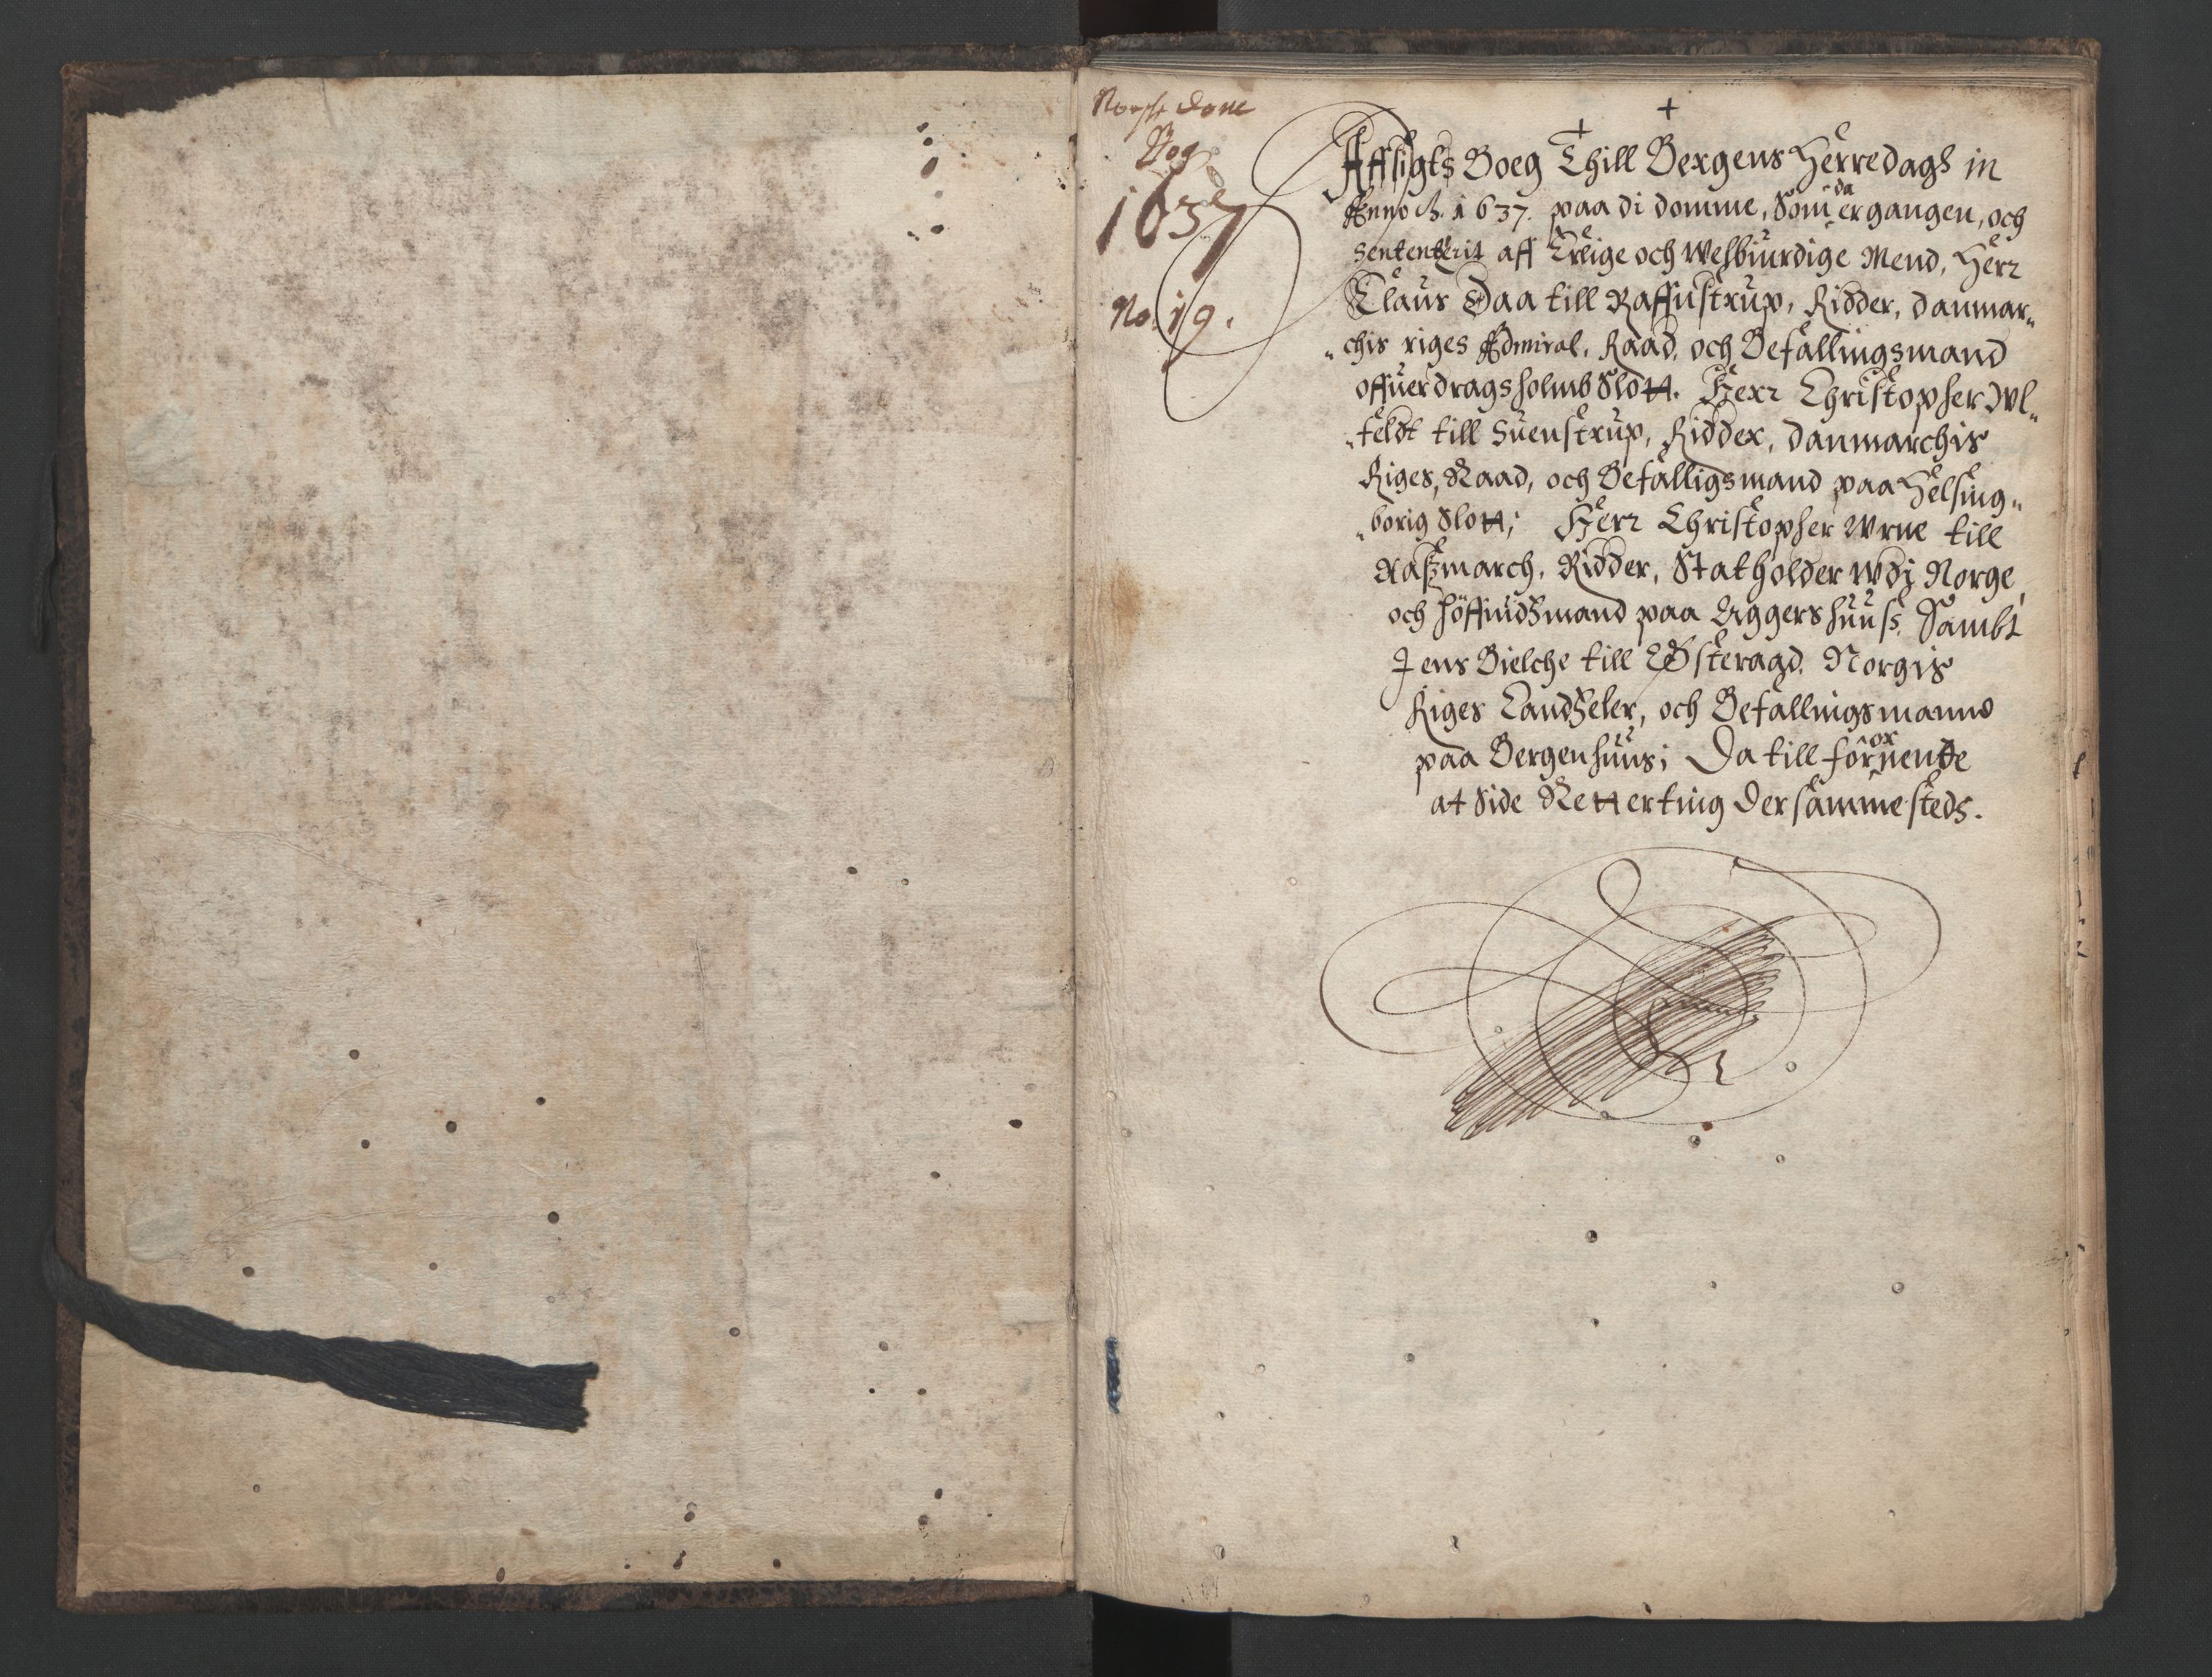 Norsk Dome
Bog
1637
No. 19.
Affsigts Boeg Thill Bergens Herredagh in
Anno &. 1637. paa di domme, Som da ergangen, och
Sententerit aff Erlige och Welbiurdige Mend, Herr
Claus Daa till Raffnstrup, Ridder, Danmar„
„chis riges Admiral, Raad, och Befallingsmand
offuer dragsholmb Slott. Herr Christopher Wl„
„feldt till Suenstrup, Ridder, Danmarchis
Riges, Raad, och Befalligsmand paa Helsing„
„borig Slott; Herr Christopher Wrne till
Aaszmarch, Ridder, Statholder wdj Norge,
och höffuidzmand paa Aggershuuss, Sambt
Jens Bielche till Østeragd, Norgis
Riges Candzeler, och Befallingsmannd
paa Bergenhuus; Da till forordnente
at Side Retterting der sammesteds.